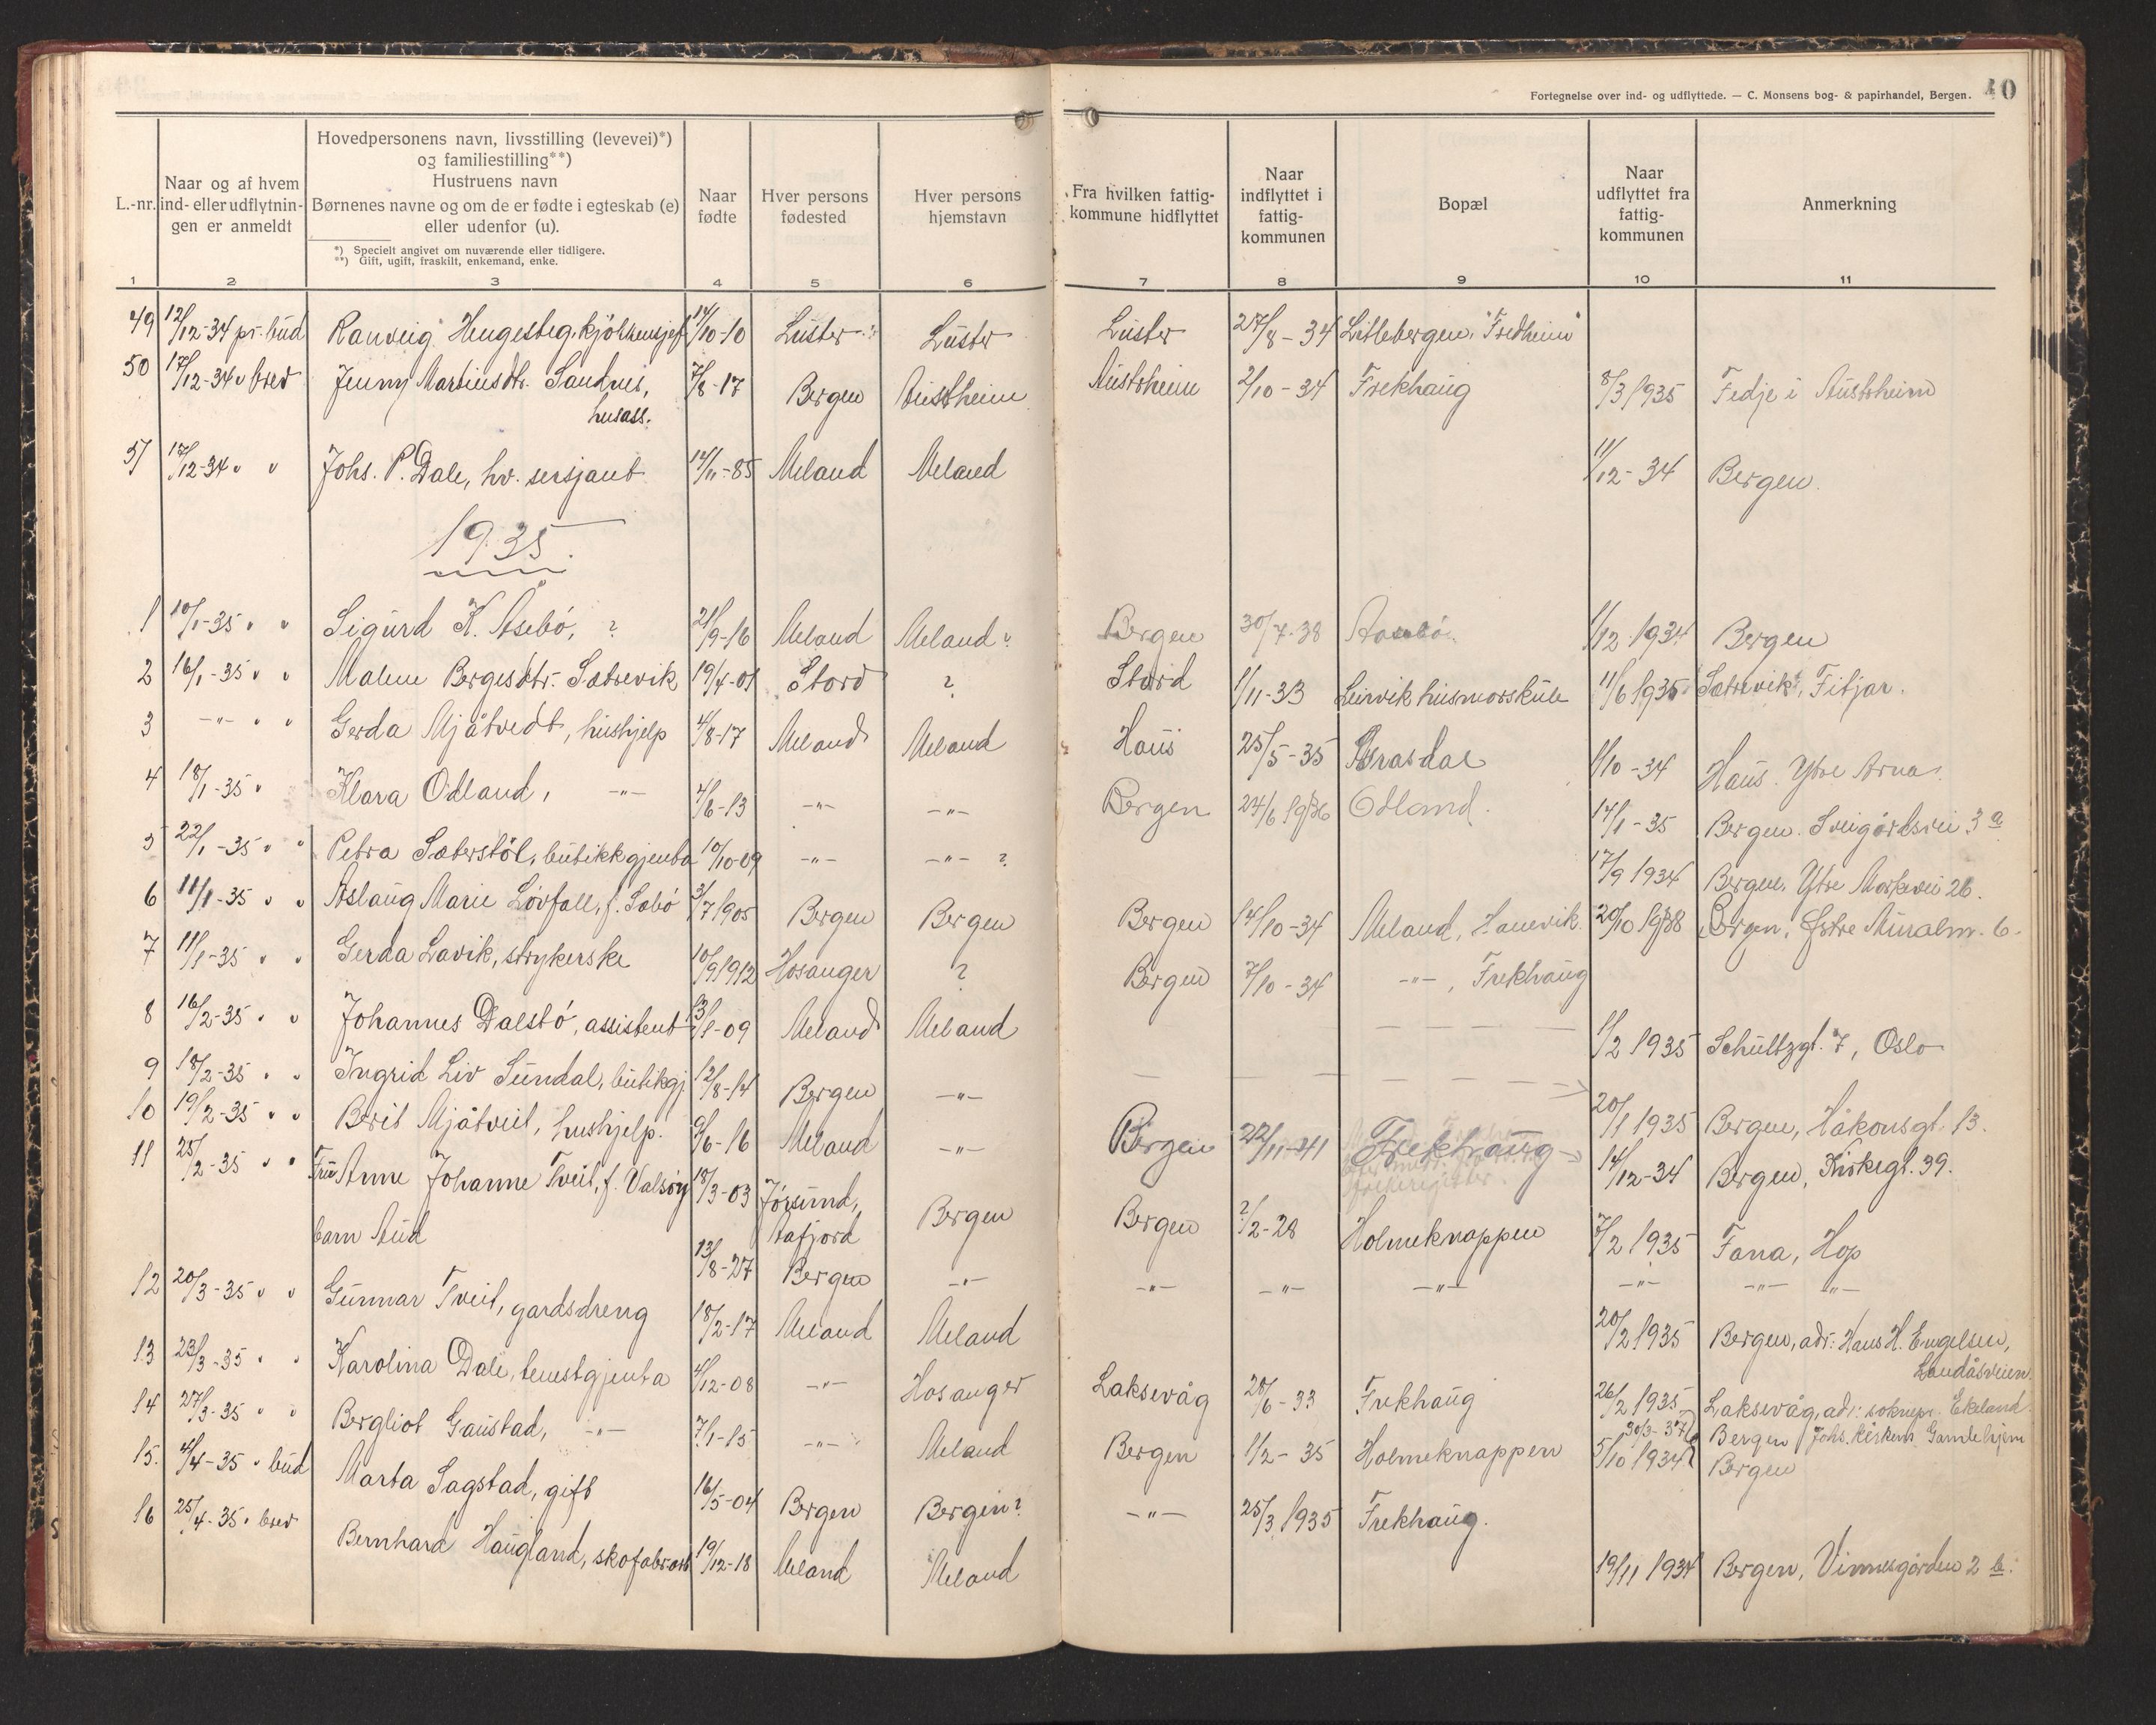 Fortegnelse over ind- og udflyttede. — C. Monsens bog- & papirhandel, Bergen. 40
L.-nr.
Naar og af hvem ind- eller udflytnin-gen er anmeldt
Hovedpersonens navn, livsstilling (levevei)*)
og familiestilling**)
Hustruens navn
Børnenes navne og om de er fødte i egteskab (e)
eller udenfor (u).
*) Specielt angivet om nuværende eller tidligere.
**) Gift, ugift, fraskilt, enkemand, enke.
Naar fødte
Hver persons fødested
Hver persons hjemstavn
Fra hvilken fattig-kommune hidflyttet
Naar indflyttet i fattig-kommunen
Bopæl
Naar udflyttet fra fattig-kommunen
Anmerkning
1 2 3 4 5 6 7 8 9 10 11
49 12/12-34 pr. bud Ranveig Hengesteg, kjøkkensjef 14/10-10 Luster Luster Luster 27/8-34 Litlebergen, "Fredheim"
50 17/12-34 " brev Jenny Martinsdtr. Sandnes, 7/8-17 Bergen Austrheim Austrheim 2/10-34 Frekhaug 8/3 1935 Fedje i Austrheim
husass.
51 17/12-34 " " Johs. P. Dale, hv. sersjant 14/11-85 Meland Meland 11/12-34 Bergen.
1935.
1 10/1-35 " " Sigurd K. Åsebö, ? 21/9-16 Meland Meland? Bergen 30/7-38 Aasebö. 1/12 1934 Bergen
2 16/1-35 " " Malene Bergesdtr. Sætrevik 19/4-01 Stord ? Stord 1/11-33 Leirvik husmorskule 11/6 1935 Sætrevik, Fitjar.
3 -"- " " Gerda Mjåtvedt, hushjelp 4/8-17 Meland Meland Haus 25/5-35 Rrasdal 1/10-34 Haus. Ytre Arna.
4 18/1-35 " Klara Odland, -"- 4/6-13 -"- -"- Bergen 24/6 1936 Odland. 14/1-35 Bergen. Sveigårdsvei 3 a
5 22/1-35 " " Petra Sæterstöl, butikkgjenta 10/10-09 -"- -"- ? 17/9 1934 Bergen. Ytre Markevei 26.
6 11/1-35 " " Aslaug Marie Lövfall, f. Sæbö 3/7 1905 Bergen Bergen Bergen 14/10-34 Meland, Hanevik. 20/10 1938 Bergen, Østre Muralm. 6.
7 11/1-35 " " Gerda Lavik, strykerske 10/9 1912 Hosanger ? Bergen 7/10-34 -"-, Frekhaug
8 16/2-35 " " Johannes Dalstö, assistent 13/1-09 Meland Meland 1/2 1935 Schultzgt. 7, Oslo
9 18/2-35 " " Ingrid Liv Sundal, butikgj 12/8-14 Bergen -"- 20/1 1935 Bergen, Håkonsgt. 13.
10 19/2-35 " " Berit Mjåtveit, hushjelp. 9/6-16 Meland -"- Bergen 22/11-41 Frekhaug 14/12-34 Bergen, Kirkegt. 39.
11 25/2-35 " " Fru Anne Johanne Tveit, f. Valsöy 18/3-03 Jörsund, Aafjord Bergen Bergen ?/2-28 Holmeknappen 7/2 1935 Fana, Hop
barn Aud 13/8-27 Bergen -"- -"- -"- -"- -"- -"- -"-
12 20/3-35 " " Gunnar Tveit, gardsdreng 18/2-17 Meland Meland 20/2 1935 Bergen, adr: Hans H. Engelsen,
Landåsveien.
13 23/3-35 " " Karolina Dale, tenestgjenta 4/12-08 -"- Hosanger Laksevåg 20/6-33 Frekhaug 26/2 1935 Laksevåg, adr: sokнepr. Ekeland
14 27/3-35 " " Bergliot Gaustad, -"- 7/1-15 -"- Meland Bergen 1/2-35 Holmeknappen 30/3-37 Bergen Johs. Gamlehjem
5/10 1934 Bergen
15. 4/4-35 " bud Marta Sagstad, gift 16/5-04 Bergen Bergen? -"- 25/3 1935 Frekhaug.
16 25/4-35 " brev Bernhard Haugland, skofabrarb 19/12-18 Meland Meland 19/11 1934 Bergen, Vinnesgården 2 b.